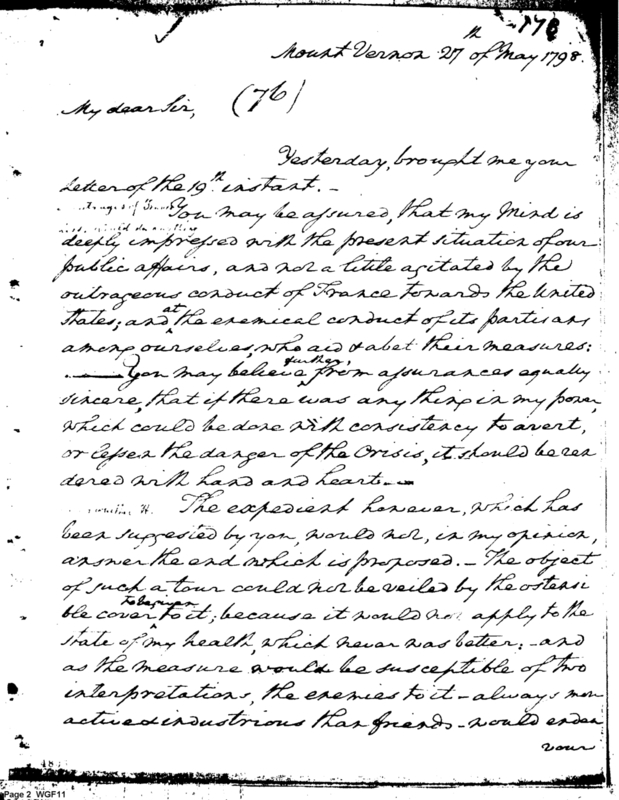 178
Mount Vernon 27th of May 1798.
My dear Sir, (76)
Yesterday, brought me your
Letter of the 19th instant. –
You may be assured, that my Mind is
deeply impressed with the present situation of our
public affairs, and not a little agitated by the
outrageous conduct of France towards the United
States; and at the enemical conduct of its partisans
among ourselves, who aid & abet their measures:
You may believe further, from assurances equally
sincere, that if there was any thing in my power,
which could be done with consistency to avert,
or lessen the danger of the Crisis, it should be ren
dered with hand and heart. –
The expedient however, which has
been suggested by you, would not, in my opinion,
answer the end which is proposed. – The object
of such a tour could not be veiled by the ostensi
ble cover to be given to it; because it would not apply to the
state of my health, which never was better: – and
as the measure would be susceptible of two
interpretations, the enemies to it – always more
active & industrious than friends – would endea
vour
Page 2 WGF11